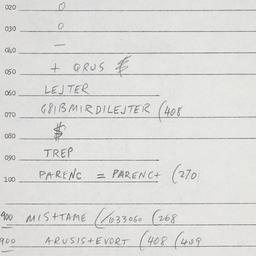 020 0
030 0
040 —
050 + QRUS $
060 LEJTER
070 G8IBMIRDILEJTER (408
080 $
090 TREP
100 PARENC = PARENC+ (270)
900 MIS+TAME (/633060 (268
900 ARUSIS+EVORT (408 (409